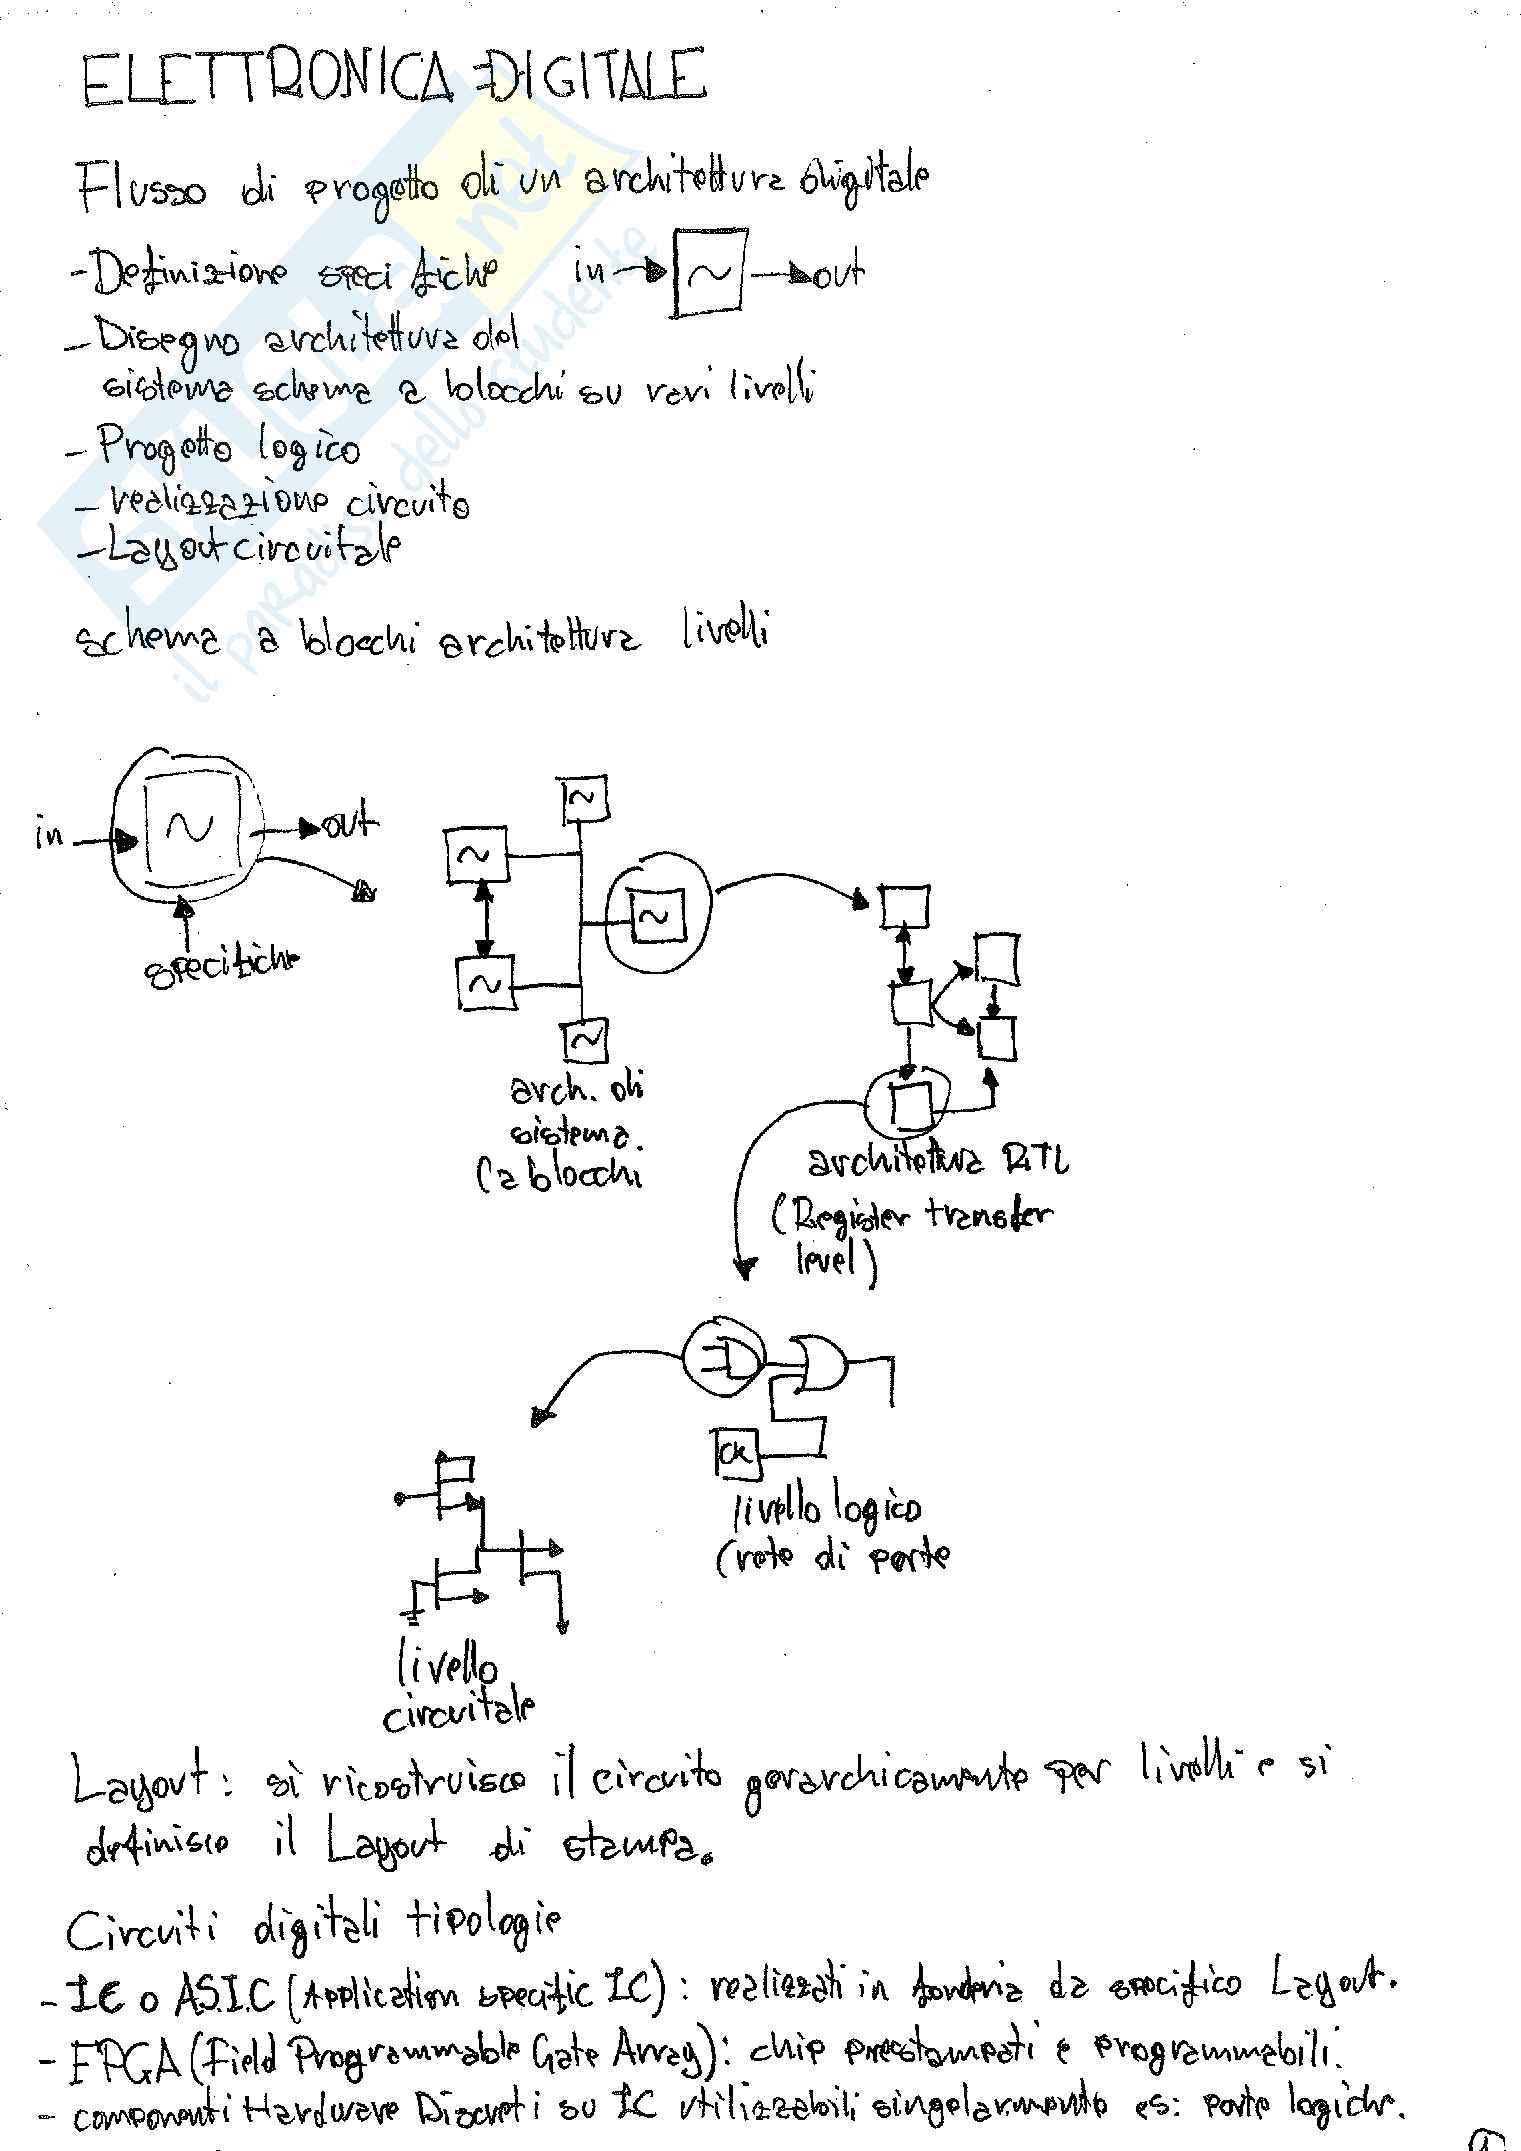 ELETTRONICA DIGITALE
Flusso di progetto di un architettura digitale
- Definizione specifiche in out
- Disegno architettura del
sistema schema a blocchi su vari livelli
- Progetto logico
- realizzazione circuito
- Layout circuitale
schema a blocchi architettura livelli
in out
specifiche
arch. di
sistema.
(a blocchi
architettura RTL
(Register transfer
level)
CK
livello logico
(rete di porte
livello
circuitale
Layout: si ricostruisce il circuito gerarchicamente per livelli e si
definisce il Layout di stampa.
Circuiti digitali tipologie
- IC o A.S.I.C (Application specific IC): realizzati in fonderia da specifico Layout.
- FPGA (Field Programmable Gate Array): chip prestampati e programmabili.
- componenti Hardware Discreti su IC utilizzabili singolarmente es: porte logiche.
1
SKUOLA.net
il paradiso dello studente